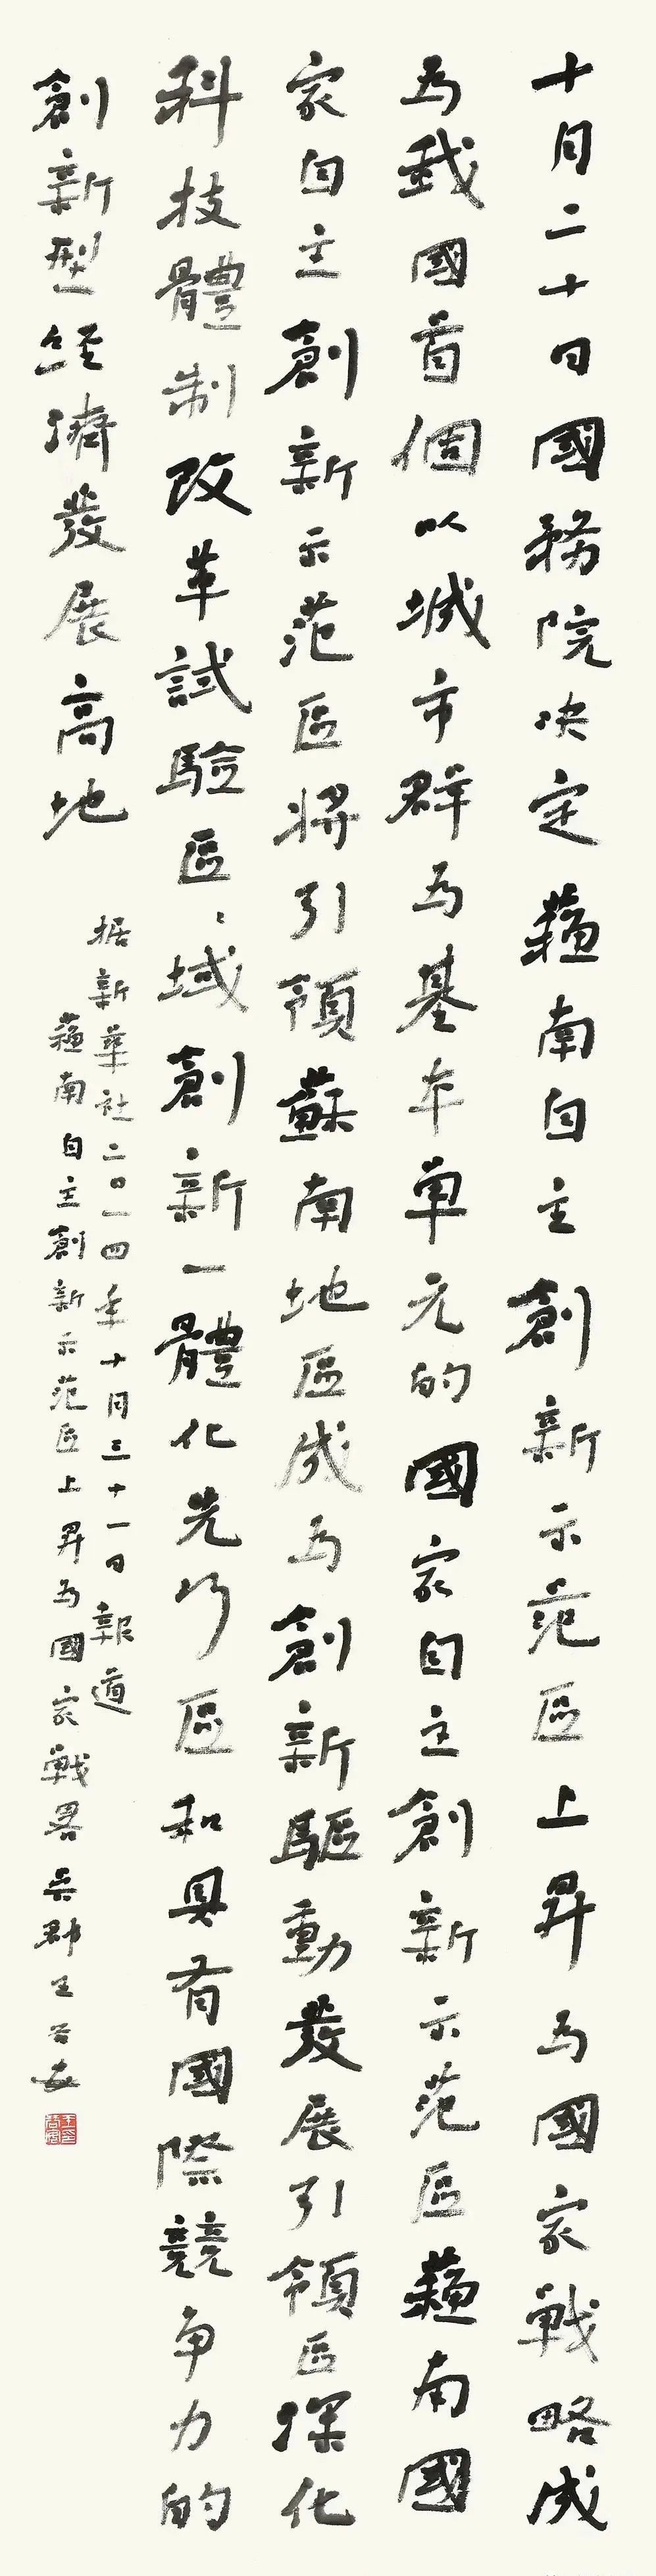 十月二十日國務院决定蘓南自主創新示范區上昇为國家戰略成
为我國首個以城市群为基本單元的國家自主創新示范區蘓南國
家自主創新示范區将引領蘇南地區成为創新驅動發展引領區深化
科技體制改革試驗區〻域創新一體化先行區和具有國際競争力的
創新型経濟發展高地
据新華社二〇一四年十月三十一日報道
蘓南自主創新示范區上昇为國家戰畧吳郡王